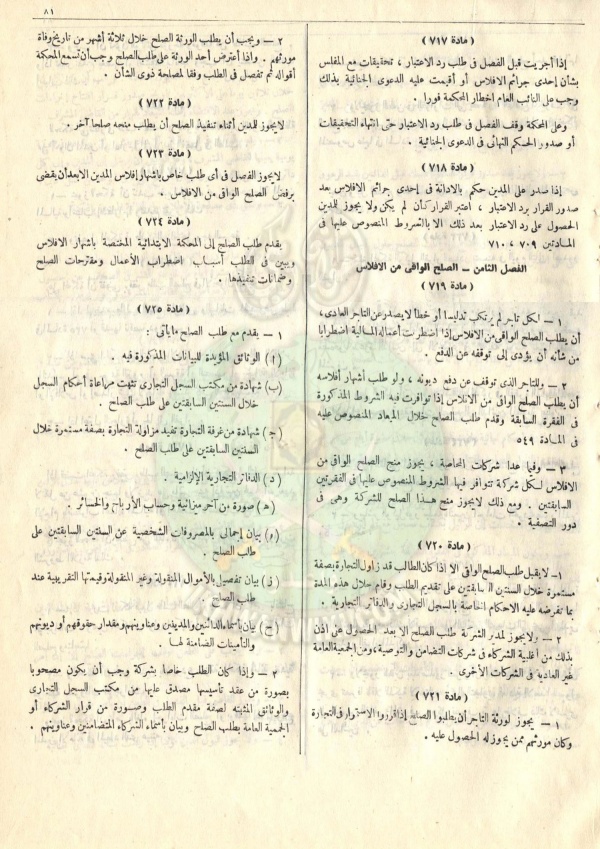 ٨١
( مادة ٧١٧ )
إذا أجريت قبل الفصل فى طلب رد الاعتبار ، تحقيقات مع المفلس
بشأن إحدى جرائم الافلاس أو أقيمت عليه الدعوى الجنائية بذلك
وجب على النائب العام اخطار المحكمة فورا .
وعلى المحكمة وقف الفصل فى طلب رد الاعتبار حتى انتهاء التحقيقات
أو صدور الحكم النهائى فى الدعوى الجنائية .
( مادة ٧١٨ )
إذا صدر على المدين حكم بالادانة فى إحدى جرائم الافلاس بعد
صدور القرار برد الاعتبار ، أعتبر القرار كأن لم يكن ولا يجوز للمدين
الحصول على رد الاعتبار بعد ذلك الا بالشروط المنصوص عليها فى
المادتين ٧٠٩ ، ٧١٠
الفصل الثامن – الصلح الواقى من الافلاس
( مادة ٧١٩ )
١ – لكل تاجر لم يرتكب تدليسا أو خطأ لا يصدر عن التاجر العادى ،
أن يطلب الصلح الواقى من الافلاس إذا اضطربت أعماله المالية اضطرابا
من شأنه أن يؤدى إلى توقفه عن الدفع .
٢ – وللتاجر الذى توقف عن دفع ديونه ، ولو طلب أشهار أفلاسه
أن يطلب الصلح الواقى من الافلاس إذا توافرت فيه الشروط المذكورة
فى الفقرة السابقة وقدم طلب الصلح خلال الميعاد المنصوص عليه
فى المادة ٥٤٩
٣ – وفيما عدا شركات المحاصة ، يجوز منح الصلح الواقى من
الافلاس لكل شركة تتوافر فيها الشروط المنصوص عليها فى الفقرتين
السابقتين . ومع ذلك لا يجوز منح هذا الصلح للشركة وهى فى
دور التصفية .
( مادة ٧٢٠ )
١ – لا يقبل طلب الصلح الواقى الا اذا كان الطالب قد زاول التجارة بصفة
مستمرة خلال السنتين السابقتين على تقديم الطلب وقام خلال هذه المدة
بما تفرضه عليه الاحكام الخاصة بالسجل التجارى والدفاتر التجارية .
٢ – ولا يجوز لمدير الشركة طلب الصلح الا بعد الحصول على اذن
بذلك من أغلبية الشركاء فى شركات التضامن والتوصية ، ومن الجمعية العامة
غير العادية فى الشركات الأخرى .
( مادة ٧٢١ )
١ – يجوز لورثة التاجر أن يطلبوا الصلح إذا قرروا الاستمرار فى التجارة
وكان مورثهم ممن يجوز له الحصول عليه .
٢ – ويجب أن يطلب الورثة الصلح خلال ثلاثة أشهر من تاريخ وفاة
مورثهم . واذا أعترض أحد الورثة على طلب الصلح وجب أن تسمع المحكمة
أقواله ثم تفصل فى الطلب وفقا لمصلحة ذوى الشأن .
( مادة ٧٢٢ )
لا يجوز للمدين أثناء تنفيذ الصلح أن يطلب منحه صلحا آخر .
( مادة ٧٢٣ )
لا يجوز الفصل فى أى طلب خاص باشهار إفلاس المدين الا بعد أن يقضى
برفض الصلح الواقى من الافلاس .
( مادة ٧٢٤ )
يقدم طلب الصلح إلى المحكمة الابتدائية المختصة باشهار الافلاس
ويبين فى الطلب أسباب اضطراب الأعمال ومقترحات الصلح
وضمانات تنفيذها .
( مادة ٧٢٥ )
١ – يقدم مع طلب الصلح ما يأتى :
( أ ) الوثائق المؤيدة للبيانات المذكورة فيه .
(ب) شهادة من مكتب السجل التجارى تثبت مراعاة أحكام السجل
خلال السنتين السابقتين على طلب الصلح .
(ج) شهادة من غرفة التجارة تفيد مزاولة التجارة بصفة مستمرة خلال
السنتين السابقتين على طلب الصلح .
(د) الدفاتر التجارية الإلزامية .
(ه) صورة من آخر ميزانية وحساب الأرباح والخسائر .
(و) بيان إجمالى بالمصروفات الشخصية عن السنتين السابقتين على
طلب الصلح .
(ز) بيان تفصيل بالأموال المنقولة وغير المنقولة وقيمتها التقريبية عند
طلب الصلح .
(ح) بيان بأسماء الدائنين والمدينين وعناوينهم ومقدار حقوقهم أو ديونهم
والتأمينات الضامنة لها .
٢ – وإذا كان الطلب خاصا بشركة وجب أن يكون مصحوبا
بصورة من عقد تأسيسها مصدق عليها من مكتب السجل التجارى
والوثائق المثبته لصفة مقدم الطلب وصورة من قرار الشركاء أو
الجمعية العامة بطلب الصلح وبيان بأسماء الشركاء المتضامنين وعناوينهم .